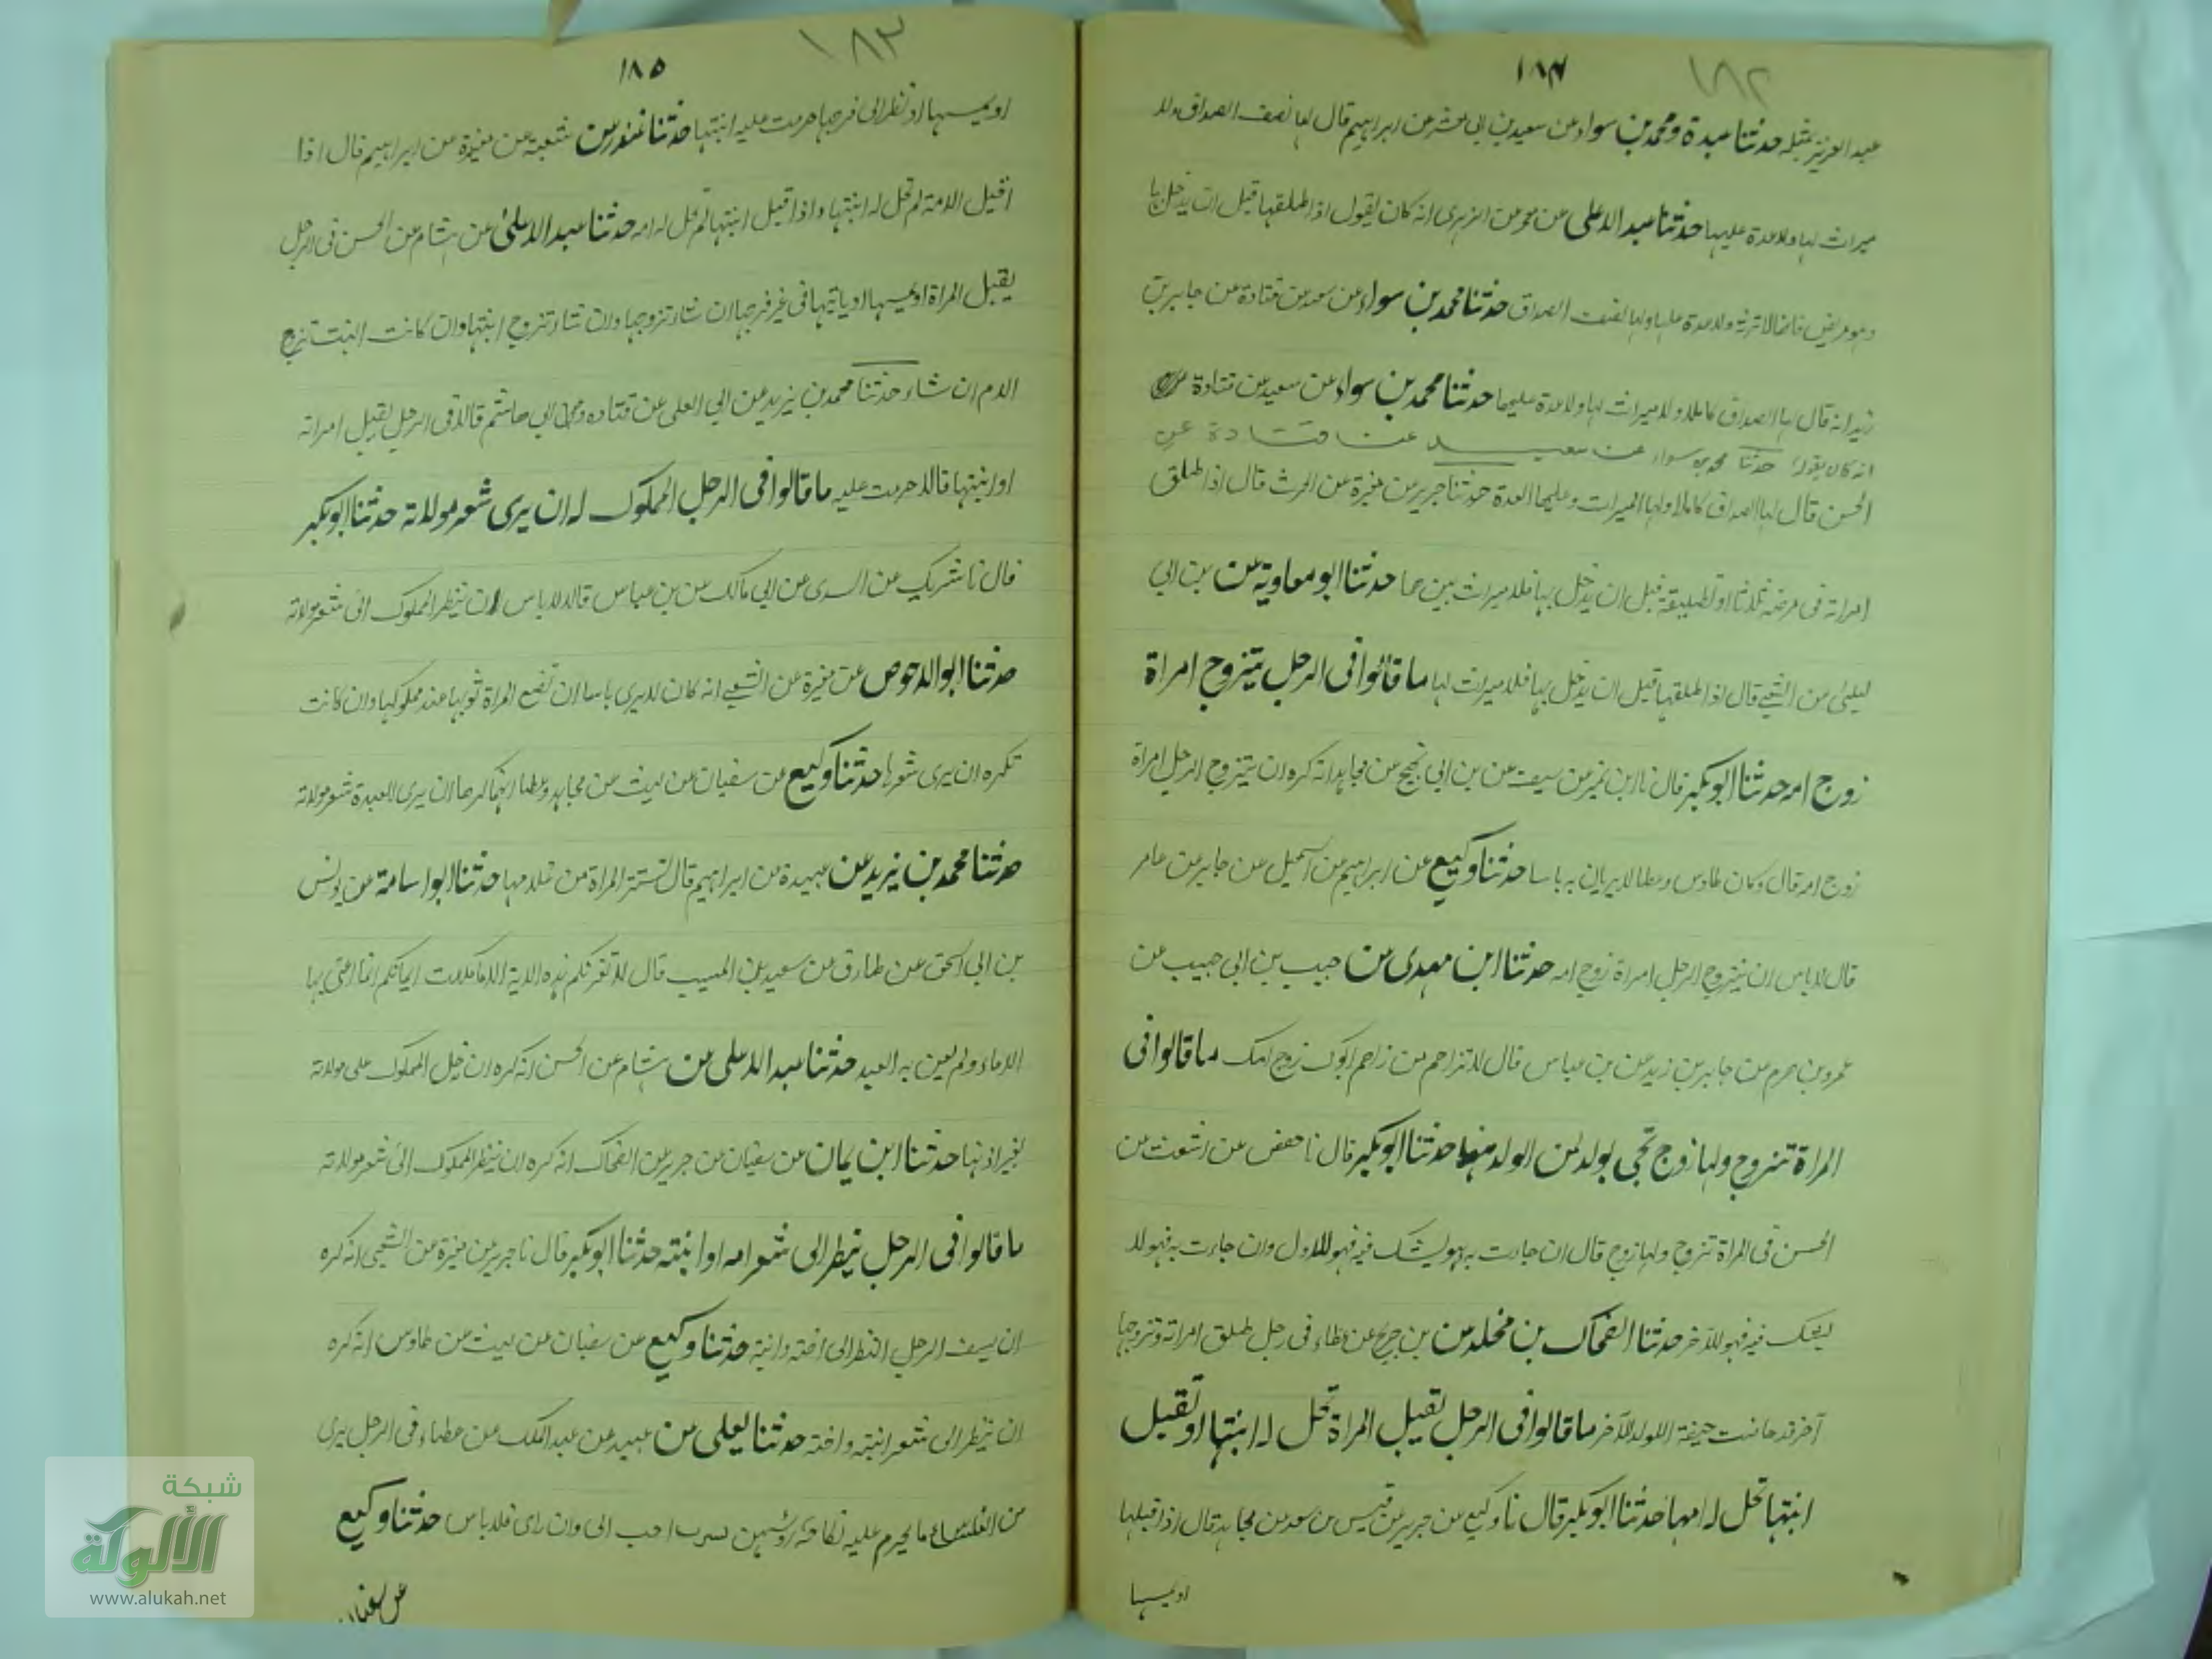 ١٨٢
١٨٤
عبد العزيز بمثله حدثنا عبدة ومحمد بن سواء عن سعيد بن ابى معشر عن ابراهيم قال لها نصف الصداق ولا
ميراث لها ولا عدة عليها حدثنا عبد الاعلى عن معمر عن الزهرى انه كان يقول اذا طلقها قبل ان يدخل بها
وهو مريض فانها لا ترثه ولا عدة عليها ولها نصف الصداق حدثنا محمد بن سواء عن سعيد عن قتادة عن جابر بن
زيد انه قال لها الصداق كاملا ولا ميراث لها ولا عدة عليها حدثنا محمد بن سواء عن سعيد عن قتادة
انه كان يقول حدثنا محمد بن سواء عن سعيد عن قتادة عن
الحسن قال لها الصداق كاملا ولها الميراث وعليها العدة حدثنا جرير عن مغيرة عن الحرث قال اذا طلق
امراته فى مرضه ثلاثا او تطليقة قبل ان يدخل بها فلا ميراث بينهما حدثنا ابو معاوية عن بن ابي
ليلى عن الشعبي قال اذا طلقها قبل ان يدخل بها فلا ميراث لها ما قالوا فى الرجل يتزوج امراة
زوج امه حدثنا ابو بكر قال نا ابن نمير عن سيف عن بن ابي نجيح عن مجاهد انه كره ان يتزوج الرجل امراة
زوج امه قال وكان طاوس وعطا لا يريان به باسا حدثنا وكيع عن ابراهيم بن اسمعيل عن جابر عن عامر
قال لا باس ان يتزوج الرجل امراة زوج امه حدثنا ابن مهدى عن حبيب بن ابى حبيب عن
عمرو بن هرم عن جابر بن زيد عن بن عباس قال لا تزاحم من زاحم ابوك زوج امك ما قالوا فى
المراة تتزوج ولها زوج تجى بولد لمن الولد منهما حدثنا ابو بكر قال نا حفص عن اشعث عن
الحسن فى المراة تتزوج ولها زوج قال ان جاءت به وهو يشك فيه فهو للاول وان جاءت به فهو لا
يشك فيه فهو للآخر حدثنا الضحاك بن مخلد عن بن جريج عن عطاء فى رجل طلق امراته وتزوجها
آخر قد حاضت حيضة الولد للآخر ما قالوا فى الرجل يقبل المراة تحل له ابنتها او يقبل
ابنتها تحل له امها حدثنا ابو بكر قال نا وكيع عن جرير عن قيس بن سعد عن مجاهد قال اذا قبلها
او يمسها
١٨٣
١٨٥
او يمسها او نظر الى فرجها حرمت عليه ابنتها حدثنا غندر عن شعبة عن مغيرة عن ابراهيم قال اذا
اقبل الامة لم تحل له ابنتها واذا قبل ابنتها لم تحل له امه حدثنا عبد الاعلى عن هشام عن الحسن فى الرجل
يقبل المراة او يمسها او ياتيها فى غير فرجها ان شاء تزوجها وان شاء تزوج ابنتها وان كانت البنت تزوج
الام ان شاء حدثنا محمد بن يزيد عن ابي العلى عن قتاده وعن ابي هاشم قالا فى الرجل يقبل امراته
او ابنتها قالا حرمت عليه ما قالوا فى الرجل المملوك له ان يرى شعر مولاته حدثنا ابو بكر
قال نا شريك عن السدى عن ابي مالك عن بن عباس قال لا باس ان ينظر المملوك الى شعر مولاته
حدثنا ابو الاحوص عن مغيرة عن الشعبي انه كان لا يرى باسا ان تضع المراة ثوبها عند مملوكها وان كانت
تكره ان يرى شعرها حدثنا وكيع عن سفيان عن ليث عن مجاهد وعطا انهما كرها ان يرى العبد شعر مولاته
حدثنا محمد بن يزيد عن عبيدة عن ابراهيم قال تستتر المراة من غلامها حدثنا ابو اسامة عن يونس
بن ابي اسحق عن طارق عن سعيد بن المسيب قال لا تغرنكم هذه الاية الا ما ملكت ايمانكم انما عنى بها
الاماء ولم يعن به العبيد حدثنا عبد الاعلى عن هشام عن الحسن انه كره ان يدخل المملوك على مولاته
بغير اذنها حدثنا ابن يمان عن سفيان عن جرير عن الضحاك انه كره ان ينظر المملوك الى شعر مولاته
ما قالوا فى الرجل ينظر الى شعر امه او ابنته حدثنا ابو بكر قال نا جرير عن مغيرة عن الشعبى انه كره
ان يسف الرجل النظر الى اخته وابنته حدثنا وكيع عن سفيان عن ليث عن طاوس انه كره
ان ينظر الى شعر ابنته واخته حدثنا يعلى بن عبيد عن عبد الملك عن عطاء فى الرجل يرى
من النساء ما يحرم عليه نكاحه رؤسهن احب الى وان راى فلا باس حدثنا وكيع
عن سفيان
شبكة
الألوكة
www.alukah.net